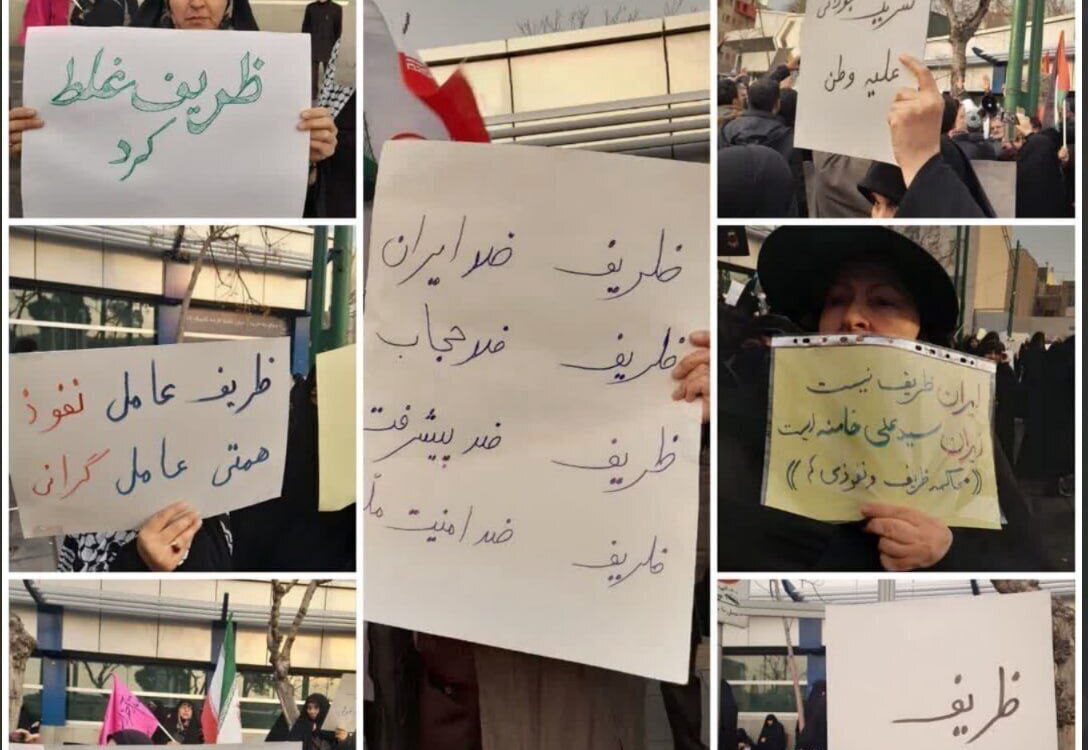 ظریف غلط
کرد
علیه وطن
ظریف ضد ایران
ظریف ضد حجاب
ظریف ضد پیشرفت
ظریف ضد امنیت
ظریف عامل نفوذ
همتی عامل گرانی
ایران ظریف نیست
ایران سید علی خامنه ایست
((محاکمه ظریف و نفوذی ها))
ظریف